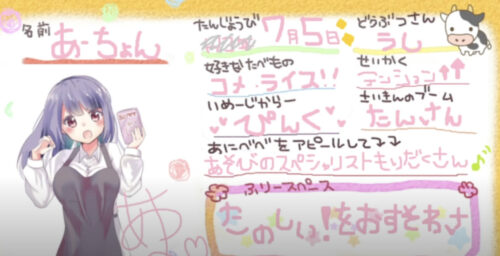 名前
あーちょん
たんじょうび
7月5日
どうぶつさん
うし
好きなたべもの
コメ・ライス!!
せいかく
テンション↑↑
いめーじからー
ぴんく
さいきんのブーム
たんさん
あにべべをアピールしてココ
あそびのスペシャリストもりだくさん
ふりースペース
たのしい!をおすそわけ